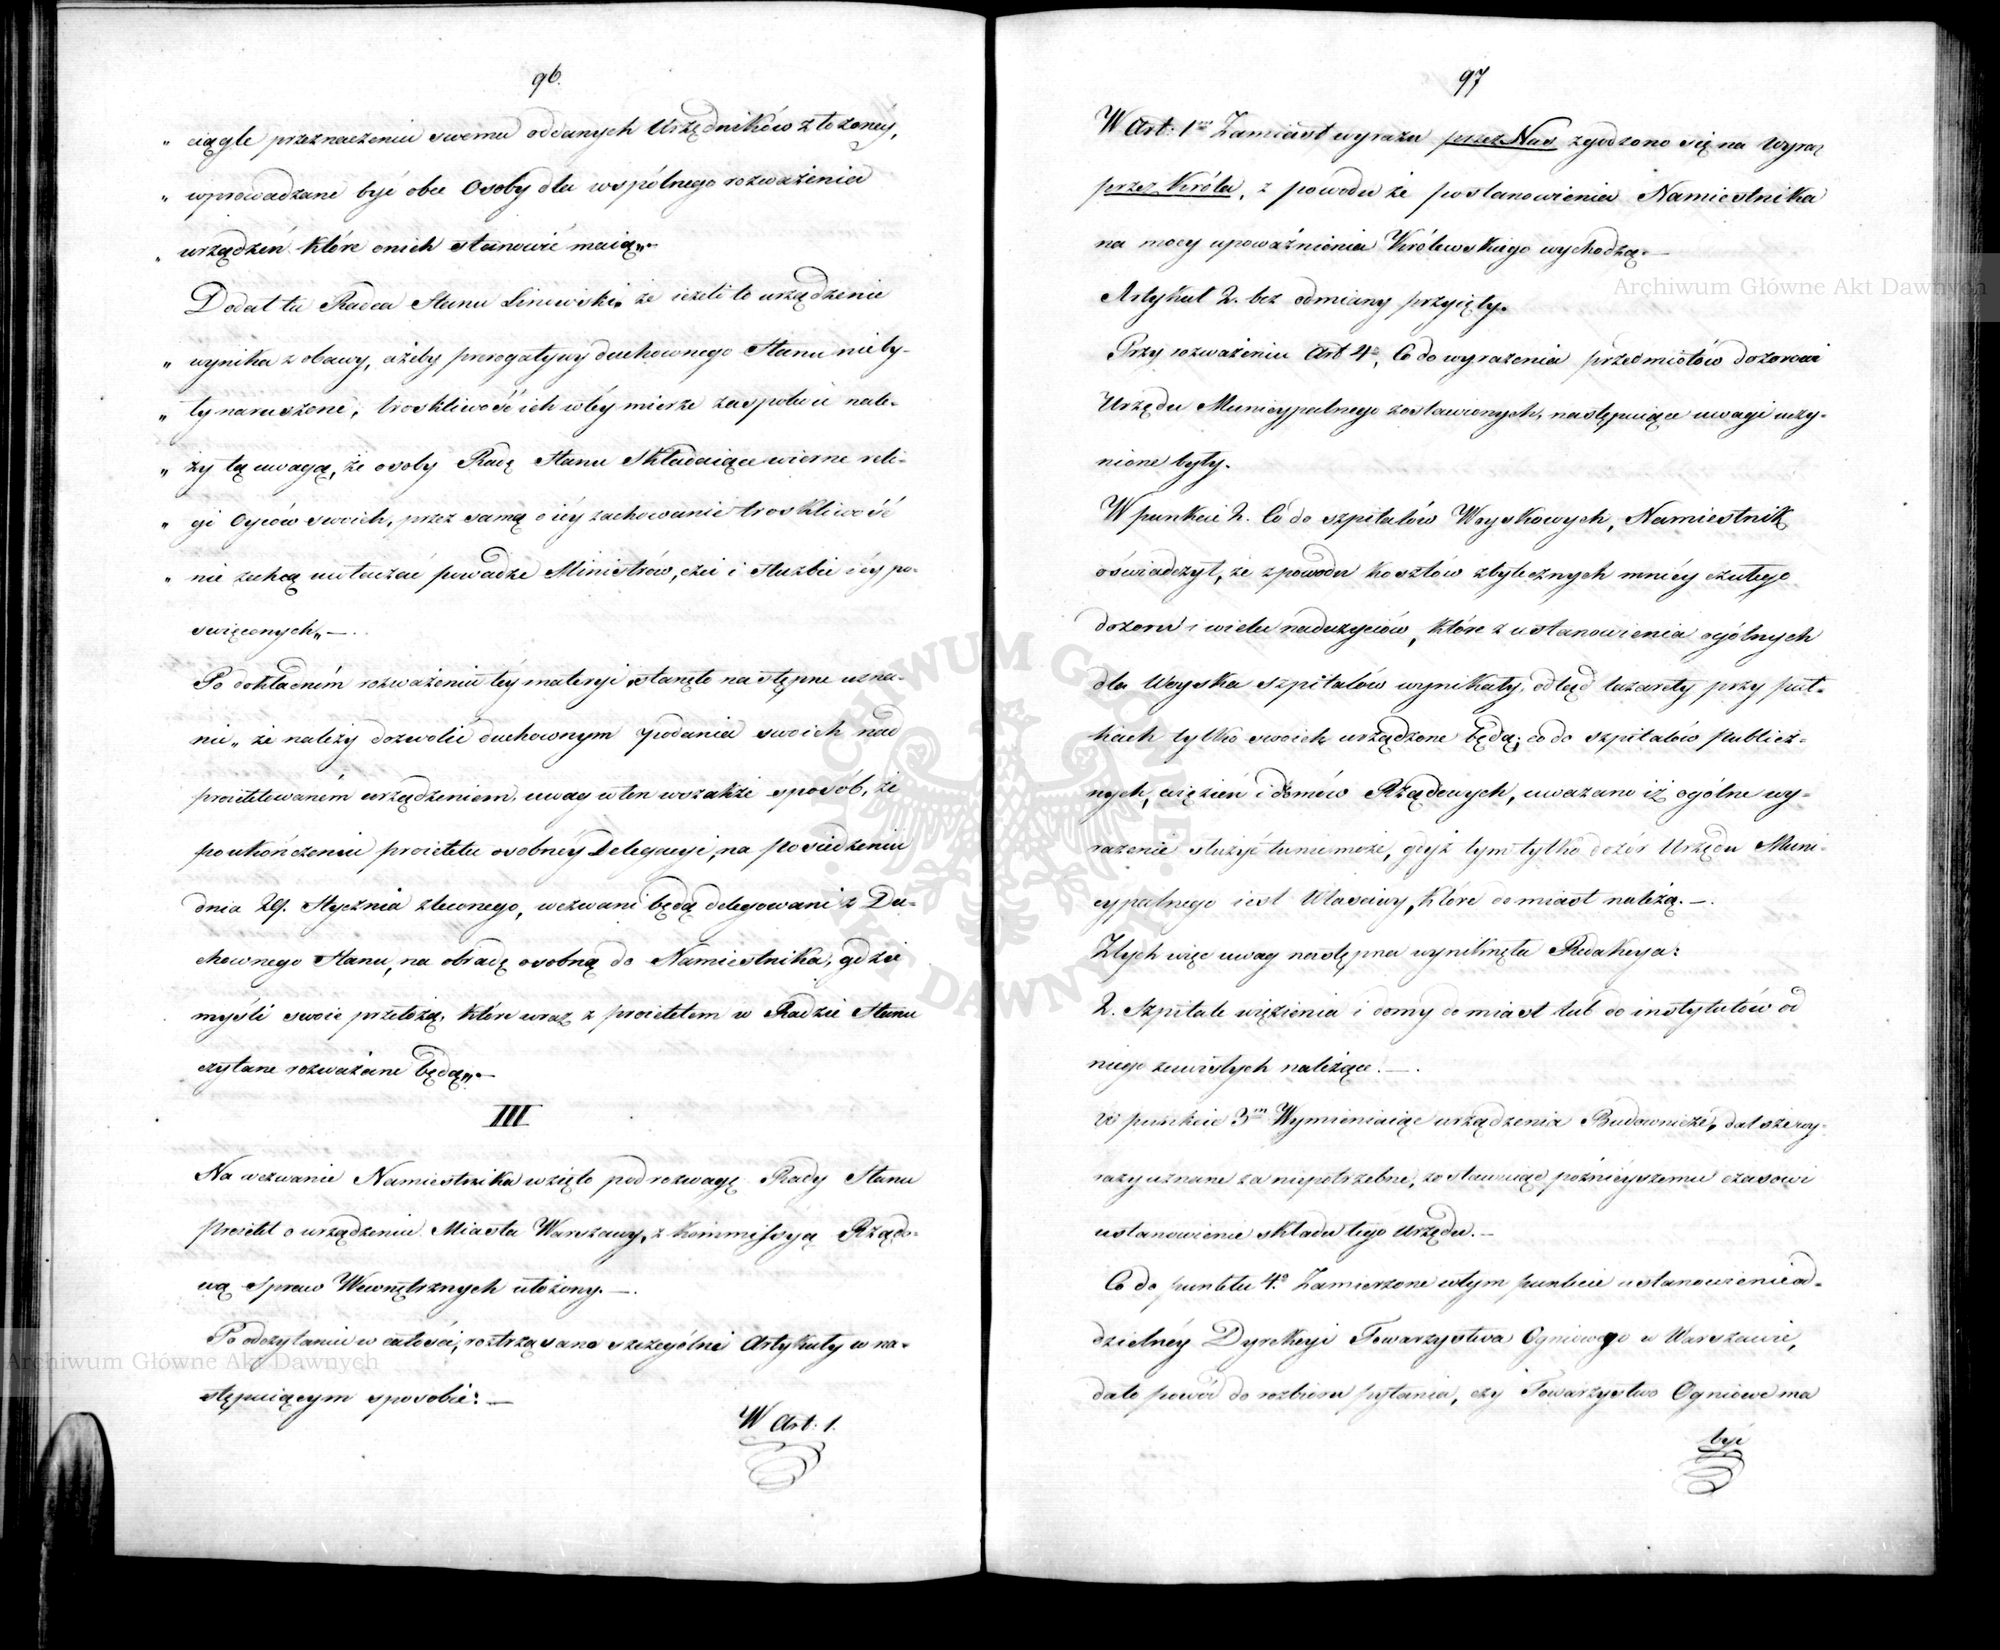 96.
„ ciągle przeznaczeniu swemu oddanych Urzędników złożonéy,
„ wprowadzane być obce Osoby dla wspólnego rozważenia
„ urządzeń które o nich stanowić maią„.
Dodał tu Radca Stanu Liniewski, że ieżeli to urządzenie
„ wynika z obawy, ażeby prerogatywy duchownego Stanu nie by-
„ ły naruszone; troskliwość ich w téy mierze zaspokoić nale-
„ ży tą uwagą, że osoby Radę Stanu Składaiące wierne reli-
„ gi Oyców swoich, przez samą o iéy zachowanie troskliwość
„ nie zechcą uwłaczać powadze Ministrów, czci i służbie iéy po-
święconych„ —.
Po dokładném rozważeniu téy materyi, stanęło następne uzna-
nie„ że należy dozwolić duchownym podania swoich nad
proiektowaném urządzeniem, uwag w ten wszakże sposób, że
po ukończeniu proiektu osobnéy Delegacyi, na posiedzeniu
dnia 29. Stycznia zleconego, wezwani będą delegowani z Du-
chownego Stanu, na obradę osobną do Namiestnika, gdzie
myśli swoie przełożą, które wraz z proiektem w Radzie Stanu
czytane rozważane będą„. —
III
Na wezwanie Namiestnika wzięto pod rozwagę Rady Stanu
proiekt o urządzeniu Miasta Warszawy, z Kommissyą Rządo-
wą Spraw Wewnętrznych ułożony. —.
Po odczytaniu w całości, roztrząsano szczególne Artykuły w na-
stępuiącym sposobie: —
W Art: 1.
97
W Art: 1m Zamiast wyrazu przez Nas zgodzono się na wyraz
przez Króla, z powodu że postanowienia Namiestnika
na mocy upoważnienia Królewskiego wychodzą. —
Artykuł 2. bez odmiany przyięty.
Przy rozważeniu Art 4o, Co do wyrażenia przedmiotów dozorowi
Urzędu Municypalnego zostawionych, następuiące uwagi uczy-
nione były.
W punkcie 2. Co do szpitalów Woyskowych, Namiestnik
oświadczył, że z powodu kosztów zbytecznych mniéy czułego
dozoru i wielu nadużyciów, które z ustanowienia ogólnych
dla Woyska szpitalów wynikały, odtąd lazarety przy puł-
kach tylko swoich urządzone będą; co do szpitalów publicz-
nych, więzień i domów Rządowych, uważano iż ogólne wy-
rażenie służyć tu nie może, gdyż tym tylko dozór Urzędu Muni-
cypalnego iest Właściwy, które do miast należą. —.
Z tych więc uwag następna wyniknęła Redakcya:
2. Szpitale więzienia i domy do miast lub do instytutów od
niego zawisłych należące. —.
W punkcie 3m Wymieniaiąc urządzenia Budownicze, dalsze wy-
razy uznane za niepotrzebne, zostawuiąc późnieyszemu czasowi
ustanowienie składu tego Urzędu. —
Co do punktu 4o Zamierzone w tym punkcie ustanowienie od-
dzielnéy Dyrekcyi Towarzystwa Ogniowego w Warszawie,
dało powód do rozbioru pytania, czy Towarzystwo Ogniowe ma
być
Archiwum Główne Akt Dawnych
Archiwum Główne Akt Dawnych
ARCHIWUM GŁÓWNE AKT DAWNYCH